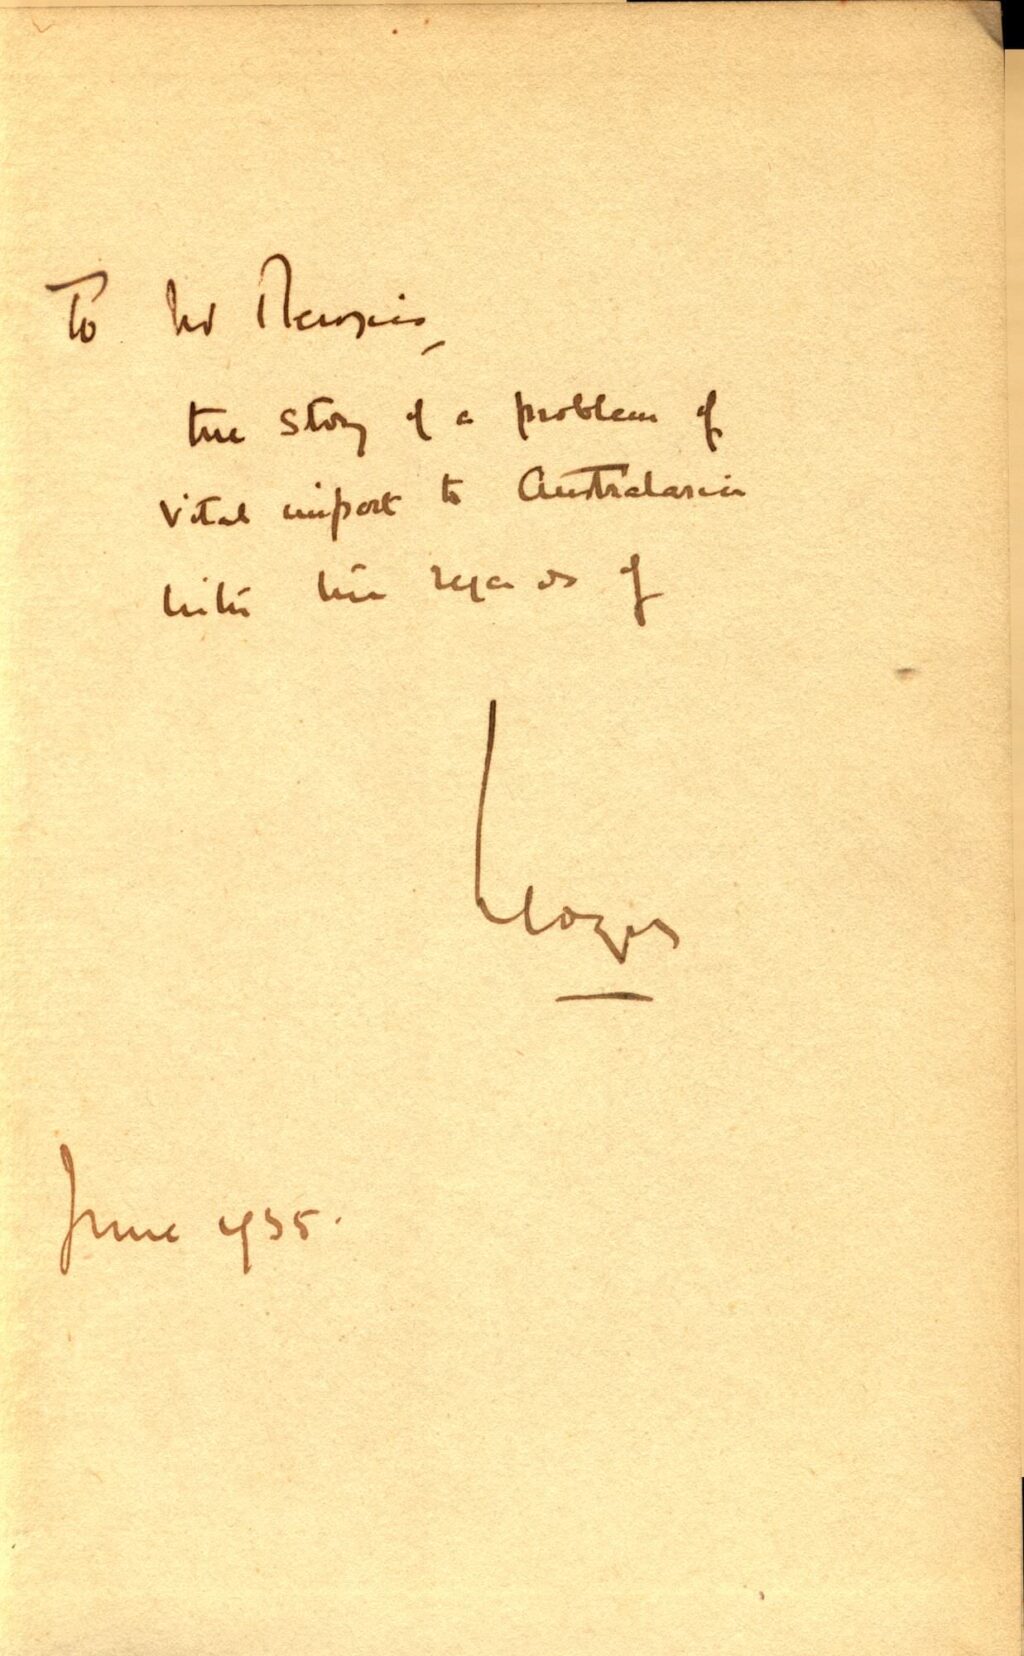 To Mr Menzies,
the story of a problem of
vital import to Australasia
with the regards of
Lloyd
June 1935.